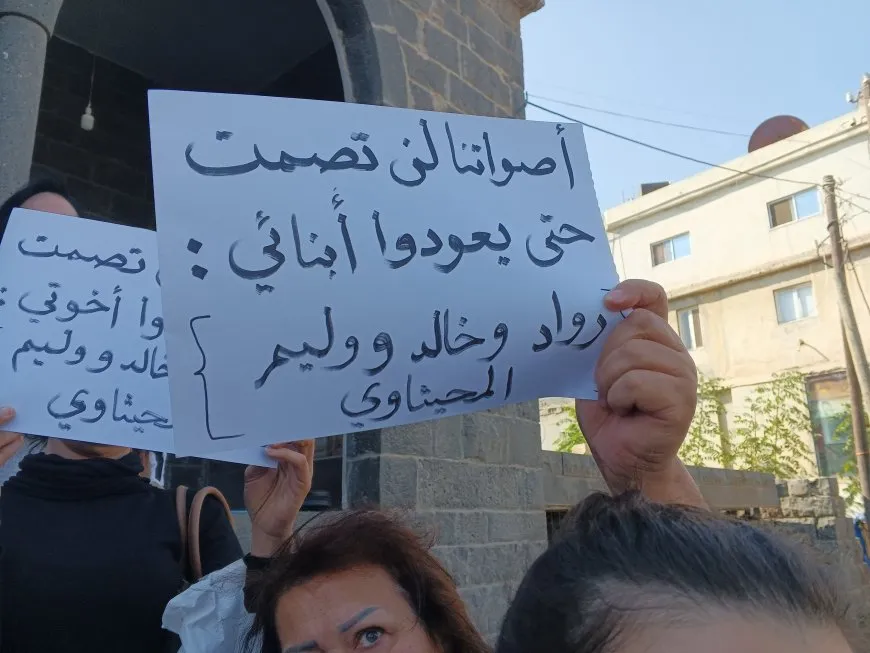 أصواتنا لن تصمت
حتى يعودوا أبنائي :
رواد وخالد ووليم
المحيثاوي
تصمت
أخوتي
خالد ووليم
المحيثاوي